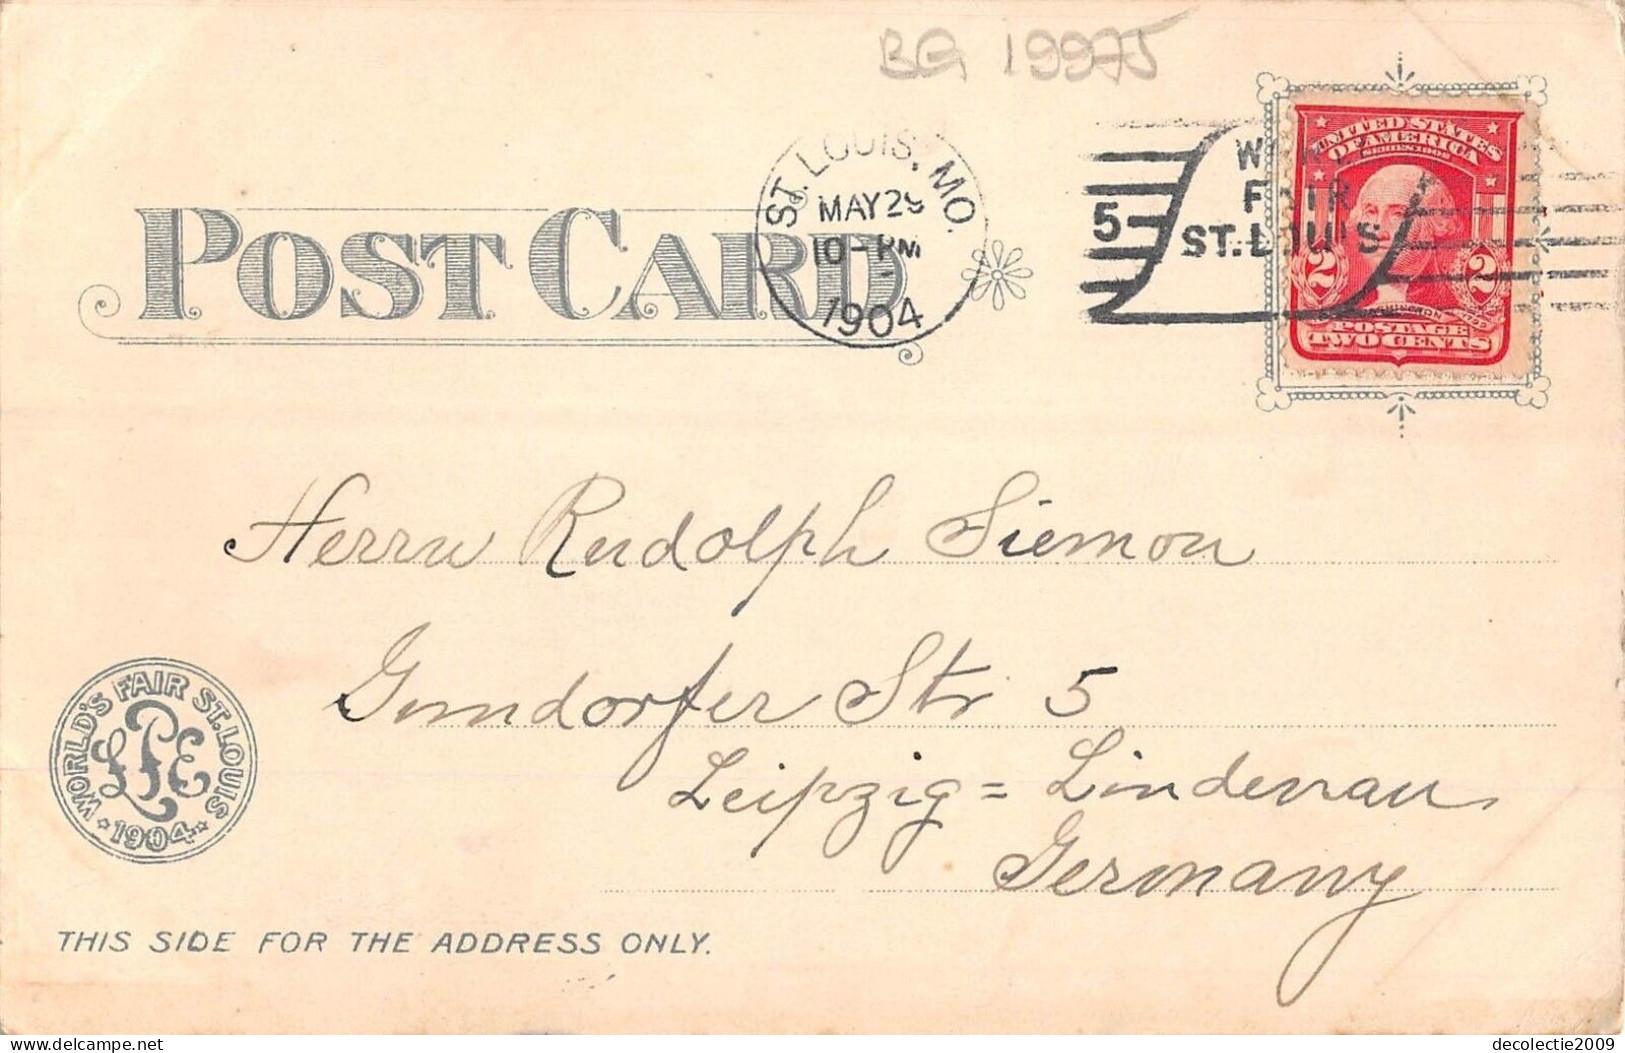 BG 19975
POST CARD
ST. LOUIS, MO.
MAY 29
10-PM
1904
5
WORLD'S
FAIR
ST. LOUIS
UNITED STATES
OF AMERICA
SERIES 1902
2 2
POSTAGE
TWO CENTS
Herrn Rudolph Siemon
Gundorfer Str 5
Leipzig = Lindenau
Germany
WORLD'S FAIR ST. LOUIS
LPE
1904
THIS SIDE FOR THE ADDRESS ONLY.
www.delcampe.net
decolectie2009